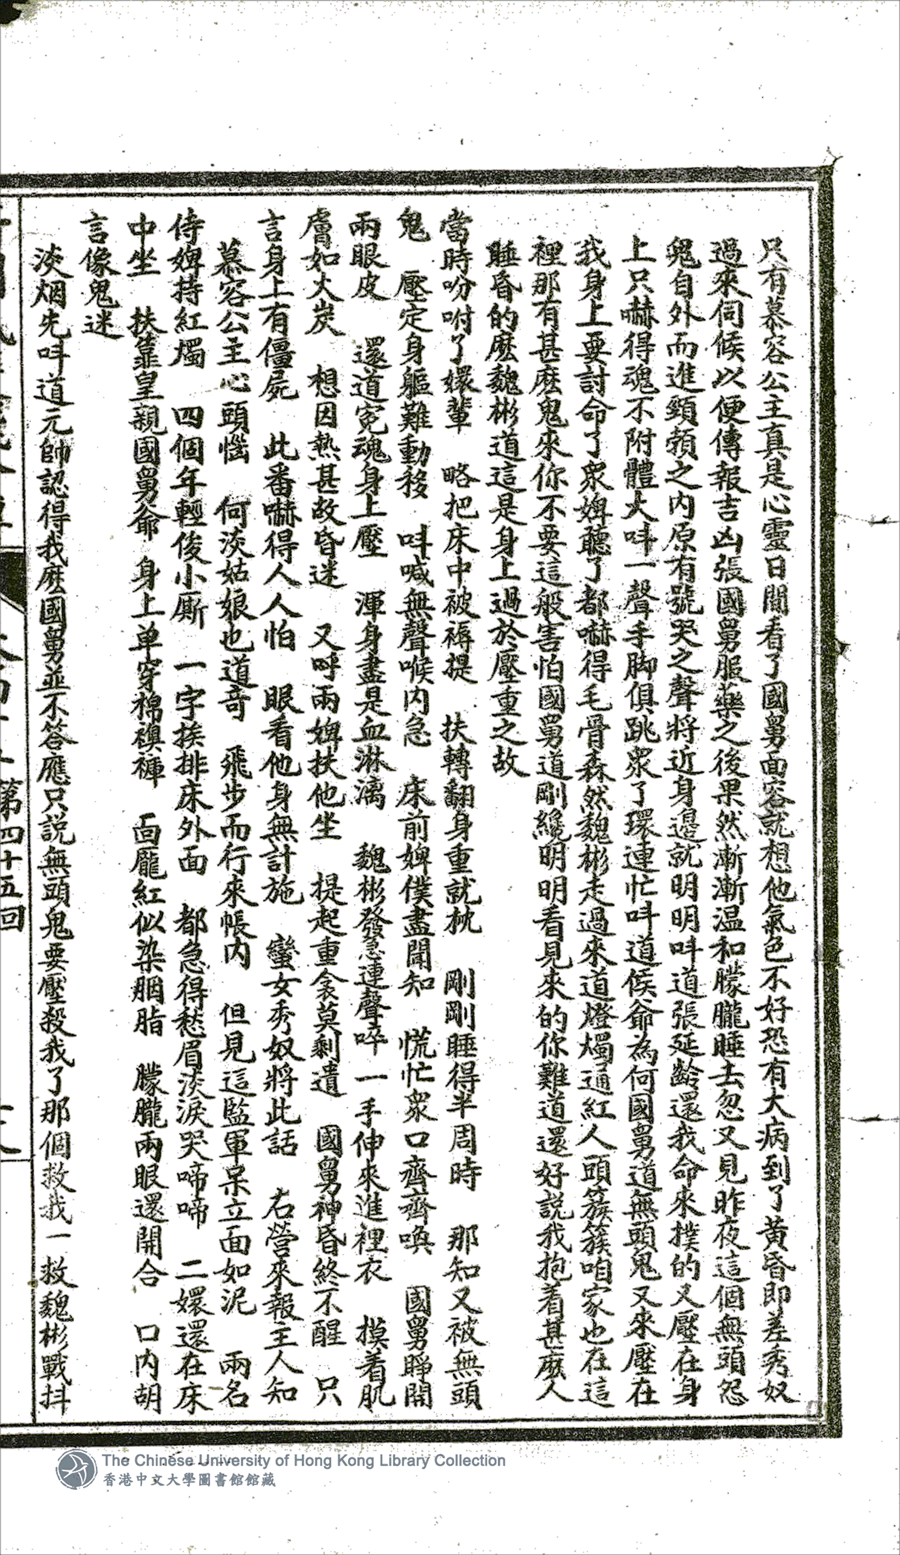 只有慕容公主真是心靈日間看了國舅面容就想他氣色不好恐有大病到了黃昏即差秀奴
過來伺候以便傳報吉凶張國舅服藥之後果然漸漸溫和朦朧睡去忽又見昨夜這個無頭怨
鬼自外而進頸頼之內原有號哭之聲將近身邊就明明呌道張延齡還我命來撲的又壓在身
上只嚇得魂不附體大呌一聲手脚俱跳衆了環連忙呌道侯爺為何國舅道無頭鬼又來壓在
我身上要討命了衆婢聽了都嚇得毛骨森然魏彬走過來道燈燭通紅人頭簇簇咱家也在這
裡那有甚麽鬼來你不要這般害怕國舅道剛纔明明看見來的你難道還好説我抱着甚麽人
睡昏的麽魏彬道這是身上過於壓重之故
當時吩咐了嬛輩 略把床中被褥提 扶轉翻身重就枕 剛剛睡得半周時 那知又被無頭
鬼 壓定身軀難動移 呌喊無聲喉内急 床前婢僕盡聞知 慌忙衆口齊齊喚 國舅睜開
兩眼皮 還道寃魂身上壓 渾身盡是血淋漓 魏彬發急連聲啐 一手伸來進裡衣 摸着肌
膚如火炭 想因熱甚故昏迷 又呼兩婢扶他坐 提起重衾莫剩遺 國舅神昏終不醒 只
言身上有僵屍 此番嚇得人人怕 眼看他身無計施 蠻女秀奴將此話 右營來報主人知
慕容公主心頭惱 何淡姑娘也道奇 飛步而行來帳内 但見這監軍呆立面如泥 兩名
侍婢持紅燭 四個年輕俊小厮 一字挨排床外面 都急得愁眉淡淚哭啼啼 二嬛還在床
中坐 扶靠皇親國舅爺 身上单穿棉襖褲 面龎紅似染胭脂 朦朧兩眼還開合 口内胡
言像鬼迷
淡烟先呌道元帥認得我麽國舅並不答應只説無頭鬼要壓殺我了那個救我一救魏彬戰抖
第四十五回
The Chinese University of Hong Kong Library Collection
香港中文大學圖書館館藏